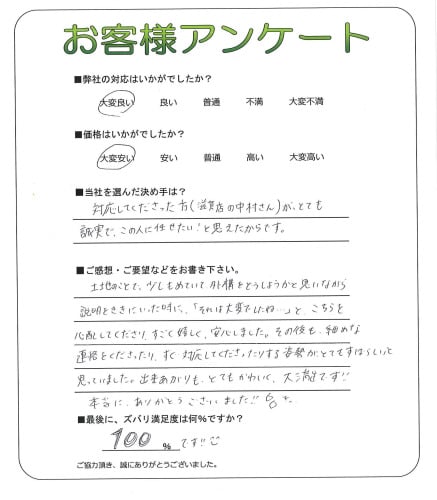 お客様アンケート
■弊社の対応はいかがでしたか？
大変良い 良い 普通 不満 大変不満
■価格はいかがでしたか？
大変安い 安い 普通 高い 大変高い
■当社を選んだ決め手は？
対応してくださった方(滋賀店の中村さん)が、とても
誠実で、この人に任せたい！と思えたからです。
■ご感想・ご要望などをお書き下さい。
土地のことで、少しもめていて外構をどうしようかと思いながら
説明をききにいった時に、「それは大変でしたね…」と、こちらを
心配してくださり、すごく嬉しく、安心しました。その後も、細めな
連絡をくださったり、すぐ対応してくださったりする姿勢がとてもすばらしいと
思っていました。出来あがりも、とてもかわいく、大満足です!!
本当に、ありがとうございました!!
■最後に、ズバリ満足度は何％ですか？
100 % です!!
ご協力頂き、誠にありがとうございました。